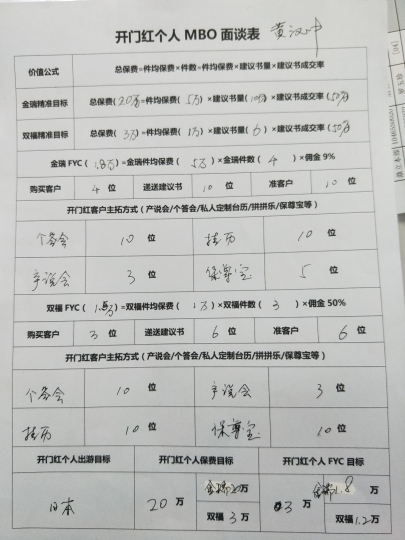 开门红个人 MBO 面谈表 黄汉中
价值公式 总保费=件均保费×件数=件均保费×建议书量×建议书成交率
金瑞精准目标 总保费(20万)=件均保费(5万)×建议书量(10份)×建议书成交率(50%)
双福精准目标 总保费(3万)=件均保费(1万)×建议书量(6)×建议书成交率(50%)
金瑞 FYC(1.8万)=金瑞件均保费(5万)×金瑞件数(4)×佣金 9%
购买客户 4 位 递送建议书 10 位 准客户 10 位
开门红客户主拓方式(产说会/个答会/私人定制台历/拼拼乐/保尊宝等)
个答会 10 位 挂历 10 位
产说会 3 位 保尊宝 5 位
双福 FYC()=双福件均保费(1万)×双福件数(3)×佣金 50%
购买客户 3 位 递送建议书 6 位 准客户 6 位
开门红客户主拓方式(产说会/个答会/私人定制台历/拼拼乐/保尊宝等)
个答会 10 位 产说会 3 位
挂历 10 位 保尊宝 10 位
开门红个人出游目标 开门红个人保费目标 开门红个人 FYC 目标
日本 20 万 万 3 万 金瑞1.8 万
双福 3 万 双福 1.2 万